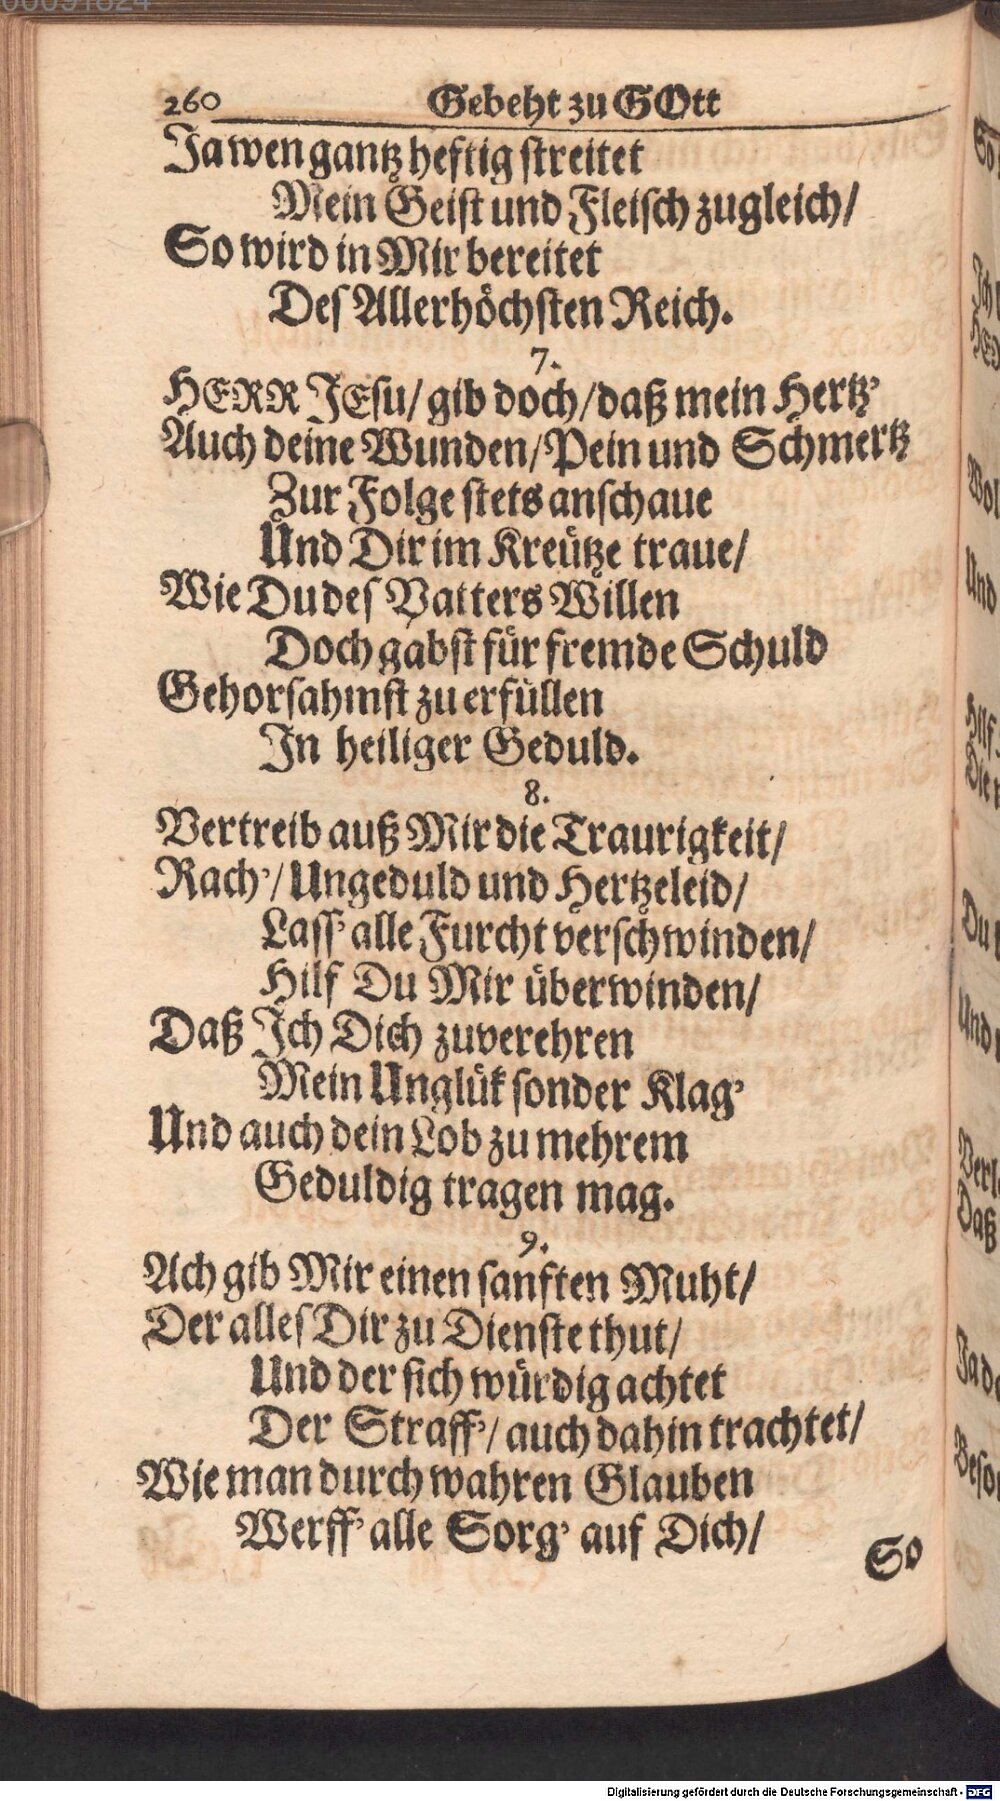 260 Gebeht zu GOtt
Ja wen gantz heftig streitet
Mein Geist und Fleisch zugleich/
So wird in Mir bereitet
Des Allerhöchsten Reich.
7.
HERR JEsu/ gib doch/ daß mein Hertz'
Auch deine Wunden/ Pein und Schmertz
Zur Folge stets anschaue
Und Dir im Kreütze traue/
Wie Du des Vatters Willen
Doch gabst für fremde Schuld
Gehorsahmst zu erfüllen
In heiliger Geduld.
8.
Vertreib auß Mir die Traurigkeit/
Rach'/ Ungeduld und Hertzeleid/
Lass' alle Furcht verschwinden/
Hilf Du Mir überwinden/
Daß Ich Dich zuverehren
Mein Unglük sonder Klag'
Und auch dein Lob zu mehrem
Geduldig tragen mag.
9.
Ach gib Mir einen sanften Muht/
Der alles Dir zu Dienste thut/
Und der sich würdig achtet
Der Straff'/ auch dahin trachtet/
Wie man durch wahren Glauben
Werff' alle Sorg' auf Dich/
So
Digitalisierung gefördert durch die Deutsche Forschungsgemeinschaft - DFG